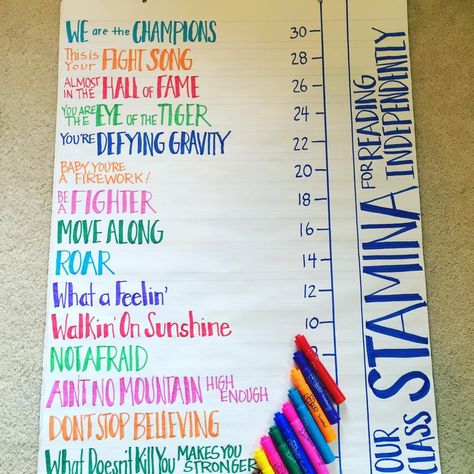 WE are the CHAMPIONS
30
This is Your FIGHT SONG
28
ALMOST IN THE HALL OF FAME
26
YOU ARE THE EYE OF THE TIGER
24
YOU'RE DEFYING GRAVITY
22
BABY, YOU'RE A FIREWORK!
20
BE A FIGHTER
18
MOVE ALONG
16
ROAR
14
What a Feelin'
12
Walkin' On Sunshine
10
NOT AFRAID
AINT NO MOUNTAIN HIGH ENOUGH
DONT STOP BELIEVING
What Doesn't Kill You MAKES YOU STRONGER
OUR CLASS STAMINA FOR READING INDEPENDENTLY